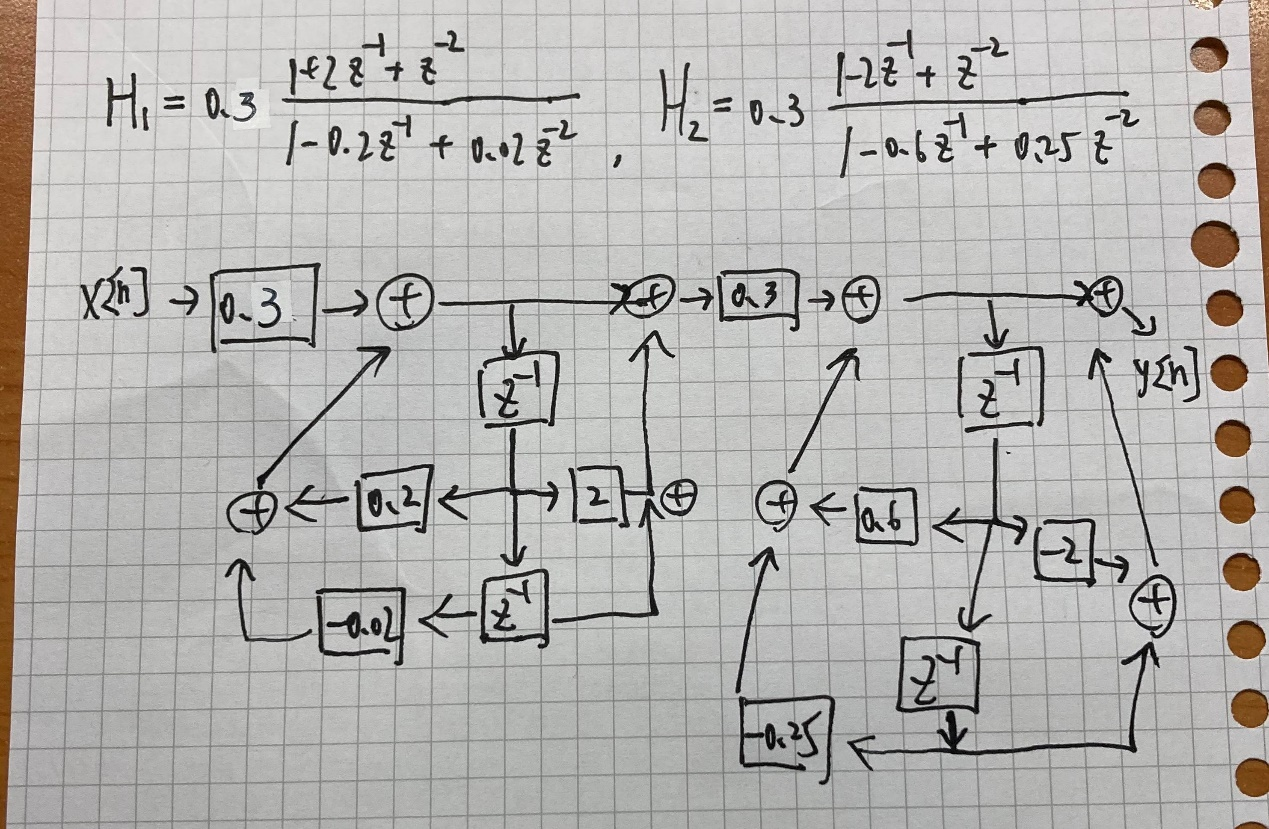 H₁ = 0.3 (1+2z⁻¹+z⁻²)/(1-0.2z⁻¹+0.02z⁻²), H₂ = 0.3 (1-2z⁻¹+z⁻²)/(1-0.6z⁻¹+0.25z⁻²)
x[n] → 0.3 → + → + → 0.3 → + → +
z⁻¹ z⁻¹ y[n]
+ ← 0.2 ← → 2 + + ← 0.6 ← → -2 →
-0.02 ← z⁻¹ +
z⁻¹
-0.25 ←